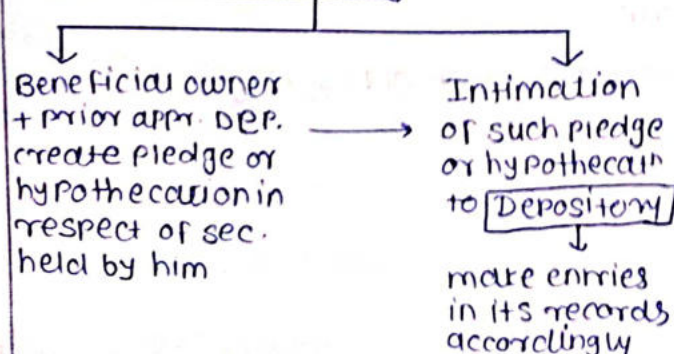 Beneficial owner
+ prior appr. Dep.
create pledge or
hypothecation in
respect of sec.
held by him
Intimation
of such pledge
or hypothecatn
to Depository
make entries
in its records
accordingly